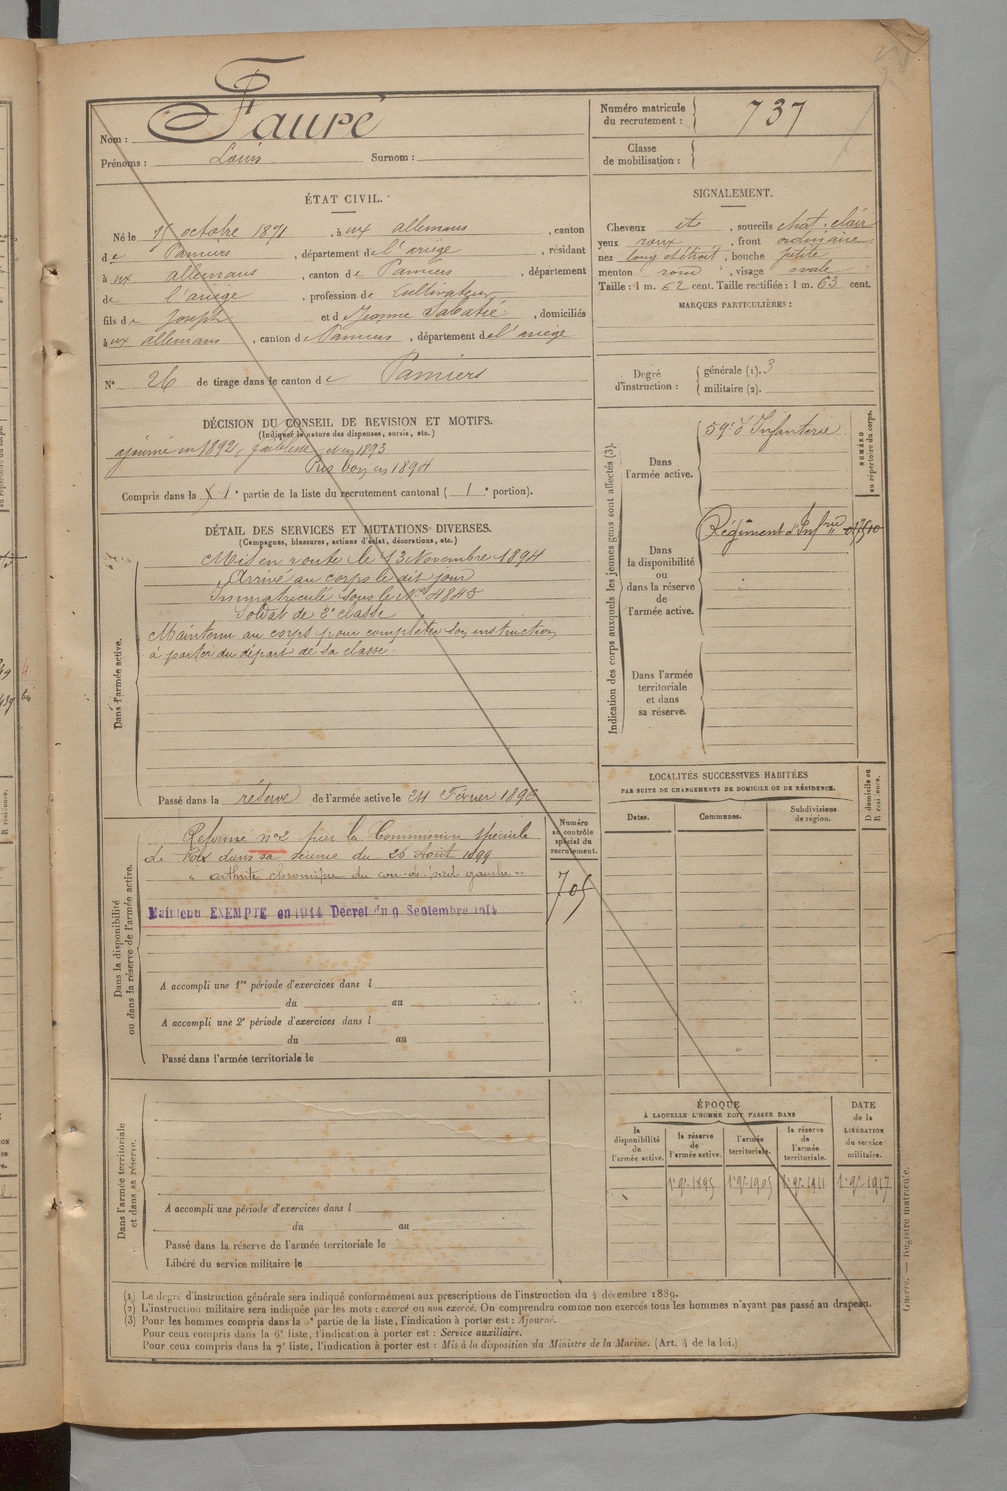 Nom : Faure
Prénoms : Louis Surnom :
Numéro matricule du recrutement : 737
Classe de mobilisation :
ÉTAT CIVIL.
Né le octobre 1871, à ux allemans, canton
de Pamiers, département de l'ariège, résidant
à ux allemans, canton de Pamiers, département
de l'ariège, profession de Cultivateur
fils de Joseph et de Jeanne Sabatié, domiciliés
à ux allemans, canton de Pamiers, département de l'ariège
N° 26 de tirage dans le canton de Pamiers
SIGNALEMENT.
Cheveux et, sourcils chat. clair
yeux roux, front ordinaire
nez long et étroit, bouche petite
menton rond, visage ovale
Taille : 1 m. 62 cent. Taille rectifiée : 1 m. 63 cent.
MARQUES PARTICULIÈRES :
Degré d'instruction : générale (1). 3
militaire (2).
DÉCISION DU CONSEIL DE REVISION ET MOTIFS.
(Indiquer la nature des dispenses, sursis, etc.)
ajourné en 1892, faiblesse et en 1893
Pris bon en 1894
Compris dans la 1e partie de la liste du recrutement cantonal ( 1e portion).
DÉTAIL DES SERVICES ET MUTATIONS DIVERSES.
(Campagnes, blessures, actions d'éclat, décorations, etc.)
Dans l'armée active.
Mis en route le 13 Novembre 1894
Arrivé au corps le dit jour
Immatriculé sous le N° 4845
Soldat de 2e classe
Maintenu au corps pour compléter son instruction
à partir du départ de sa classe.
Passé dans la réserve de l'armée active le 24 Février 1896
Dans la disponibilité ou dans la réserve de l'armée active.
Réformé n°2 par la Commission spéciale
de Foix dans sa séance du 26 Août 1899
"arthrite chronique du cou-de-pied gauche"
Maintenu EXEMPTE en 1914 Décret du 9 Septembre 1914
Numéro au contrôle spécial du recrutement.
705
A accompli une 1re période d'exercices dans l
du au
A accompli une 2e période d'exercices dans l
du au
Passé dans l'armée territoriale le
Dans l'armée territoriale et dans sa réserve.
A accompli une période d'exercices dans l
du au
Passé dans la réserve de l'armée territoriale le
Libéré du service militaire le
Indication des corps auxquels les jeunes gens sont affectés (3).
NUMÉRO au répertoire du corps.
Dans l'armée active.
59e d'Infanterie
Dans la disponibilité ou dans la réserve de l'armée active.
Régiment d'Infrie
Dans l'armée territoriale et dans sa réserve.
LOCALITÉS SUCCESSIVES HABITÉES
PAR SUITE DE CHANGEMENTS DE DOMICILE OU DE RÉSIDENCE.
Dates. Communes. Subdivisions de région. D domicile ou R résidence.
ÉPOQUE
À LAQUELLE L'HOMME DOIT PASSER DANS
la disponibilité de l'armée active.
la réserve de l'armée active.
l'armée territoriale.
la réserve de l'armée territoriale.
DATE de la LIBÉRATION du service militaire.
1er 9bre 1895 1er 9bre 1905 1er 9bre 1911 1er 9bre 1917
(1) Le degré d'instruction générale sera indiqué conformément aux prescriptions de l'instruction du 4 décembre 1889.
(2) L'instruction militaire sera indiquée par les mots : exercé ou non exercé. On comprendra comme non exercés tous les hommes n'ayant pas passé au drapeau.
(3) Pour les hommes compris dans la 5e partie de la liste, l'indication à porter est : Ajourné.
Pour ceux compris dans la 6e liste, l'indication à porter est : Service auxiliaire.
Pour ceux compris dans la 7e liste, l'indication à porter est : Mis à la disposition du Ministre de la Marine. (Art. 4 de la loi.)
Guerre. — Registre matricule.